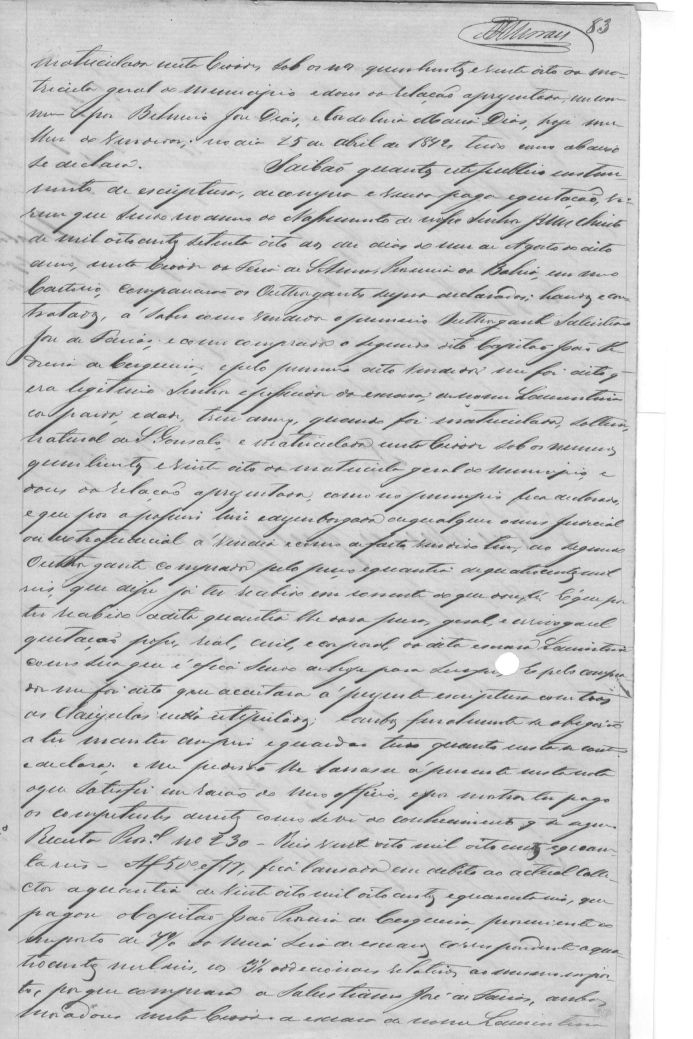 83
matriculada nesta Cidade sob os nos quinhentos e vinte oito da ma-
tricula geral do Municipio e dous da relação apresentada, 
por Belmiro José Dias, e Maria Dias, hoje mu-
lher do vendedor, no dia 25 de Abril de 1872, tudo como abaixo
se declara. Saibão quantos este publico instru-
mento de escriptura, de compra e venda paga e quitação, vi-
rem que sendo no anno do Nascimento de Nosso Senhor Jesus Christo
de mil oitocentos setenta oito aos dias do mez de Agosto do dito
anno, nesta Cidade da Feira de Santa Anna Provincia da Bahia, em meo
Cartorio, comparecerão os Outhorgantes declarados; havidos e con-
tratados, á saber como vendedor o primeiro Outhorgante Salustiano
José de Farias; e como comprador o segundo dito Capitão João Pe-
dreira de Cerqueira; e pelo primeiro dito vendedor me foi dito q
era legitimo Senhor e possuidor da escrava de nome Laurentina
cor parda, edade, tres annos, quando foi matriculada, solteira,
natural de S. Gonsalo, e matriculada nesta Cidade sob os numeros
quinhentos e vinte oito da matricula geral do Municipio, e
dous da relação apresentada, como no principio fica declarado,
e que por a possuir livre e desembargada de qualquer onus judicial
ou extrajudicial a vendia e como de facto vendido tem, ao segundo
Outhorgante comprador pelo preço e quantia de quatrocentos mil
reis, que disse já ter recebido em moeda do que dou fé. E que por
ter recebido a dita quantia lhe dava plena, geral, e irrevogavel
quitação, posse, real, civil, e corporal, da dita escrava Laurentina
como sua que é e fica sendo de hoje para sempre. E pelo compra-
dor me foi dito que aceitava á presente escriptura com todas
as Clausulas nella estipuladas; e ambos finalmente se obrigarão
a ter manter cumprir e guardar tudo quanto nesta se contem
e declara; e me pedirão lhe lavrasse á presente nesta nota
o que satisfiz em razão do meo officio, e por mostrar ter pago
os competentes direitos como se vê do conhecimento q se segue
Receita Pro.al no 230 - Reis vinte oito mil oito centos e quaren-
ta reis - Af 50 e f 17, fica lançada em debito ao actual Colle-
ctor a quantia de vinte oito mil oito centos e quarenta reis, que
pagou o Capitão João Pedreira de Cerqueira, proveniente do
imposto de 7% da meia siza de escravos correspondente a qua-
trocentos mil reis, e os 3% addicionaes relativos ao mesmo impos-
to, por que comprara a Salustiano José de Farias, ambos
moradores nesta Cidade a escrava de nome Laurentina